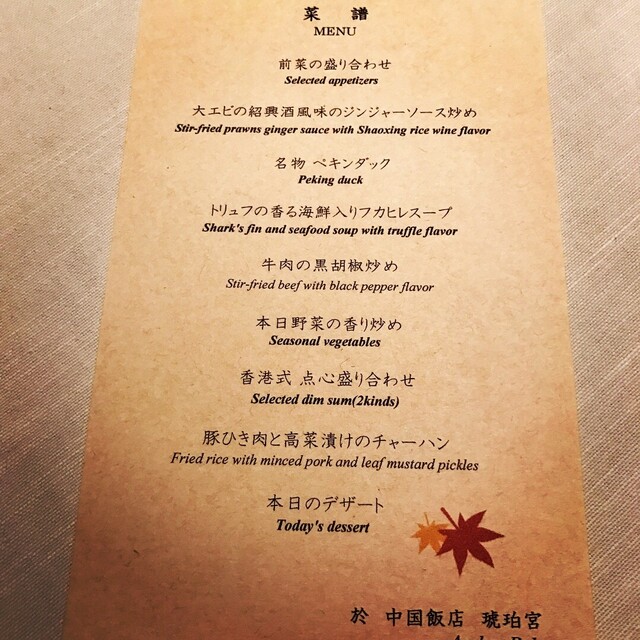 菜 譜
MENU
前菜の盛り合わせ
Selected appetizers
大エビの紹興酒風味のジンジャーソース炒め
Stir-fried prawns ginger sauce with Shaoxing rice wine flavor
名物 ペキンダック
Peking duck
トリュフの香る海鮮入りフカヒレスープ
Shark's fin and seafood soup with truffle flavor
牛肉の黒胡椒炒め
Stir-fried beef with black pepper flavor
本日野菜の香り炒め
Seasonal vegetables
香港式 点心盛り合わせ
Selected dim sum(2kinds)
豚ひき肉と高菜漬けのチャーハン
Fried rice with minced pork and leaf mustard pickles
本日のデザート
Today's dessert
於 中国飯店 琥珀宮